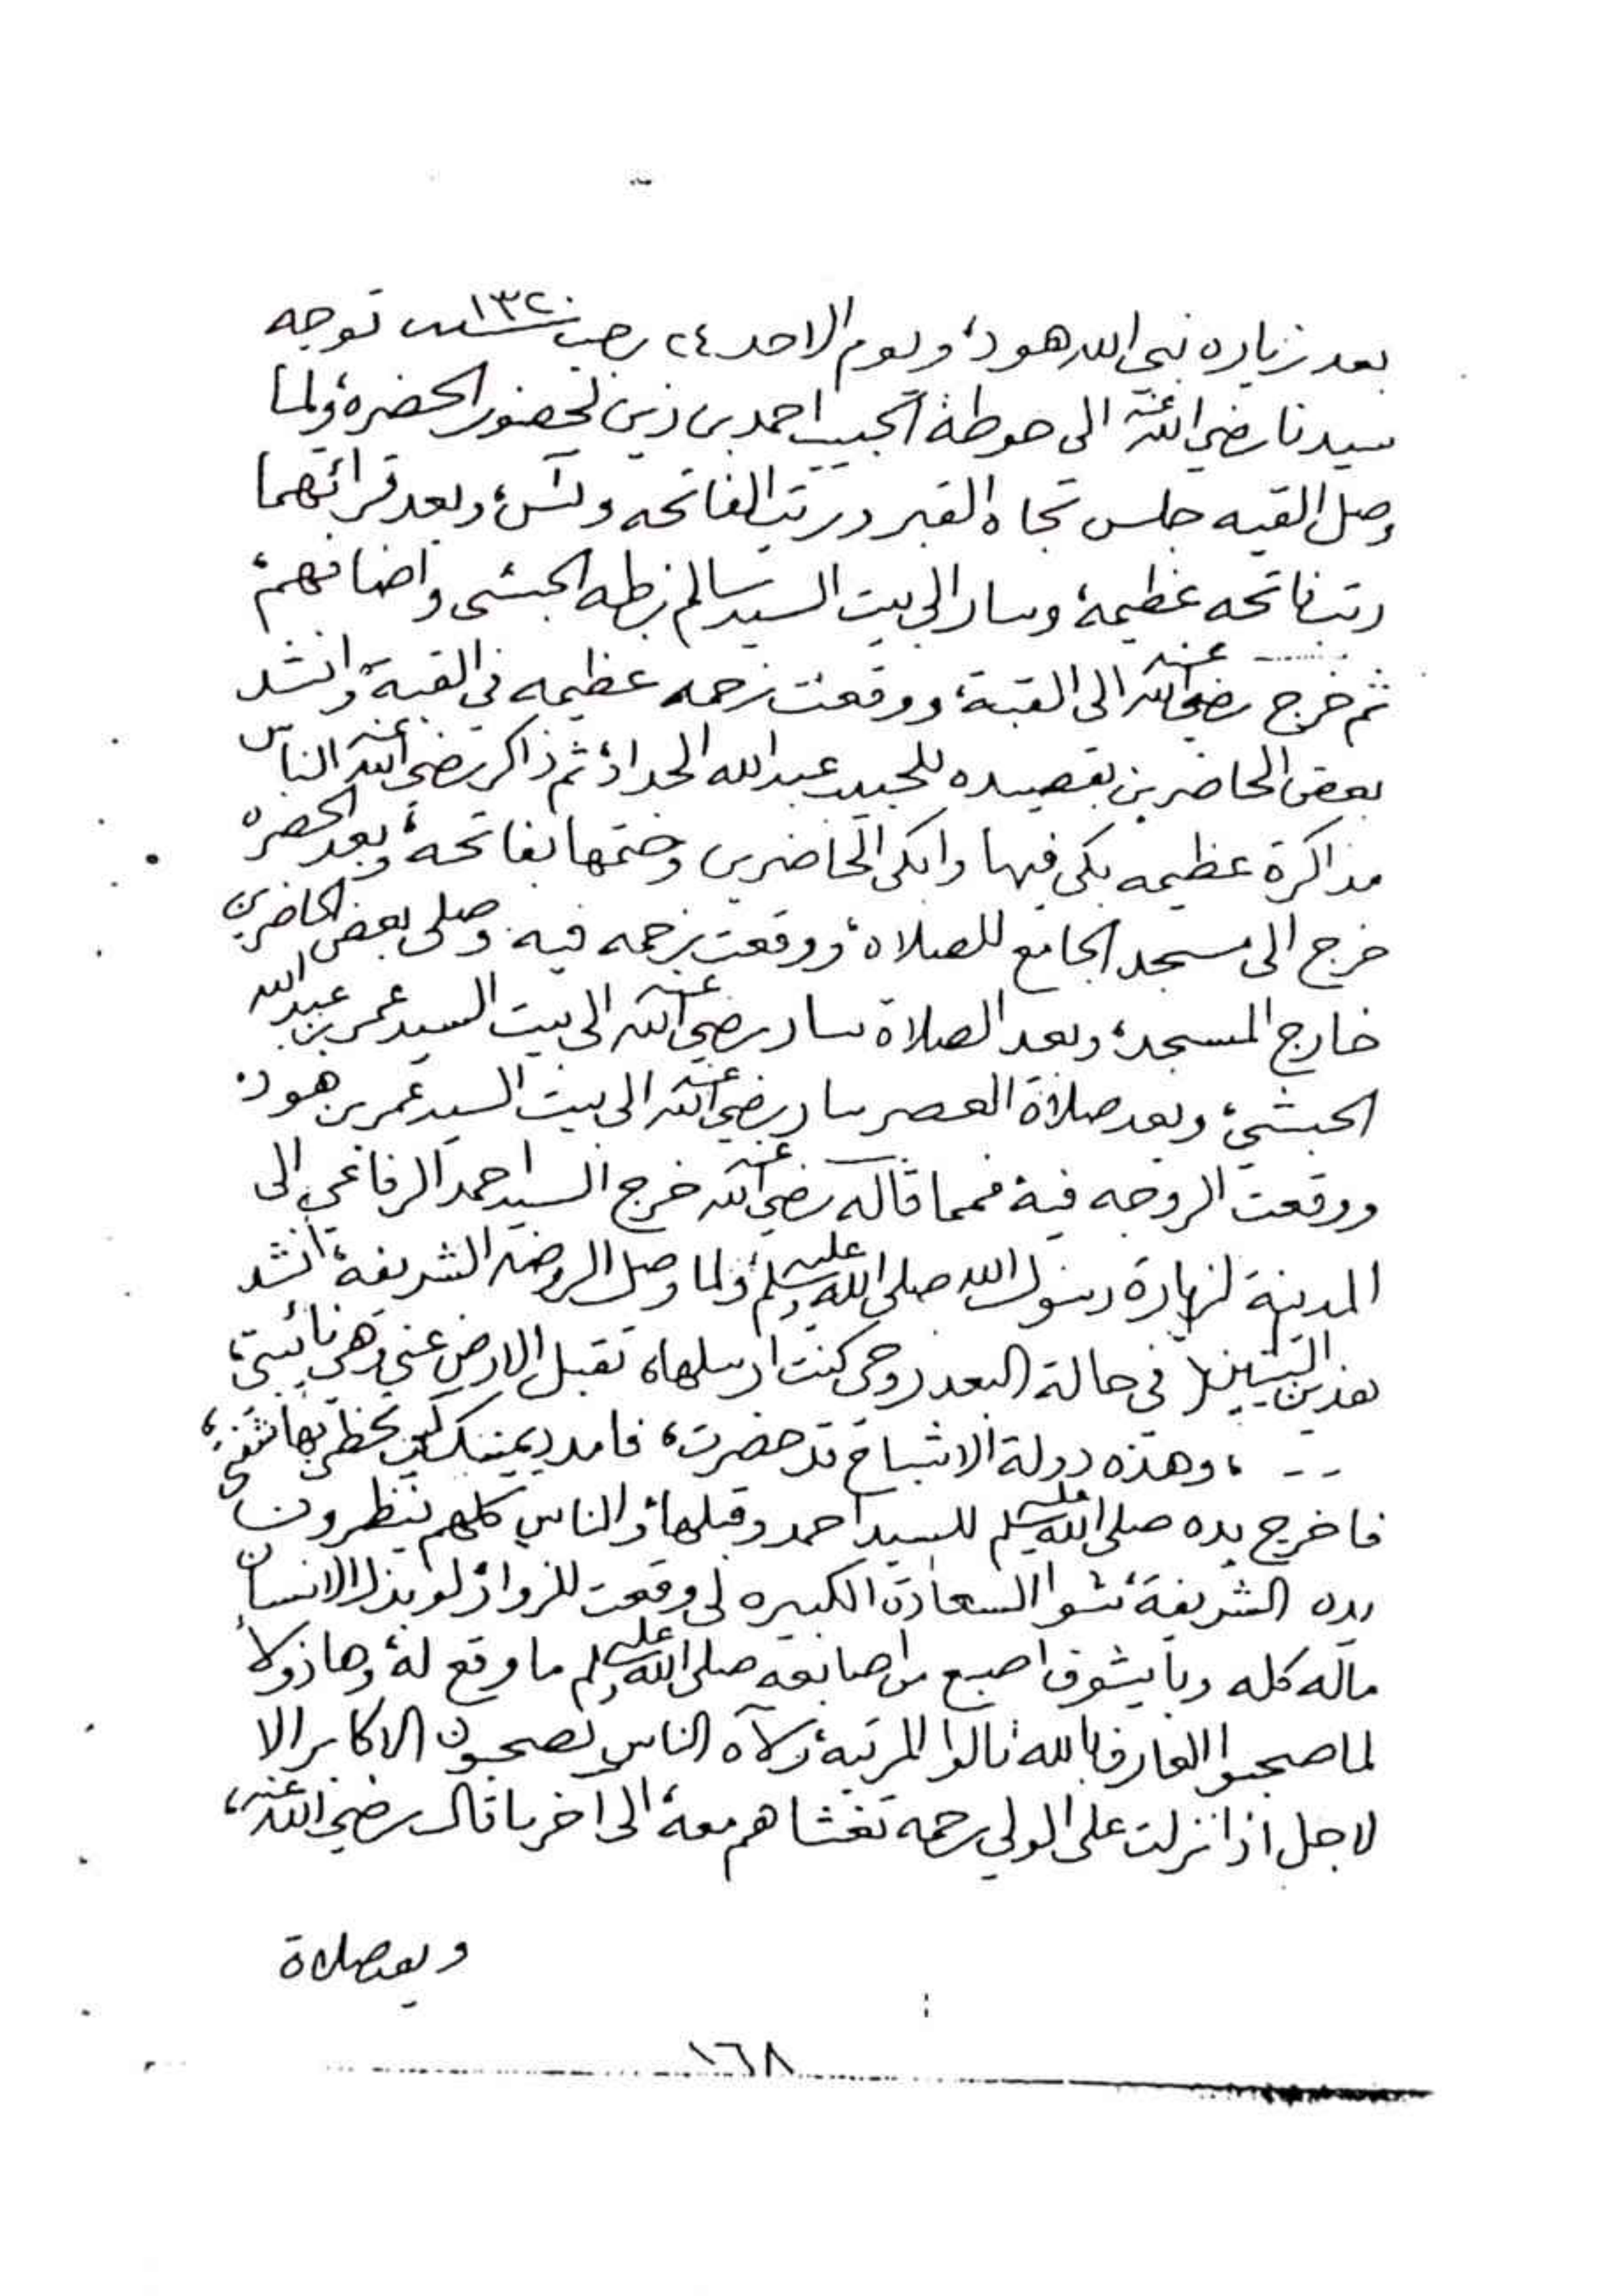 بعد زياره نبي الله هود، ويوم الاحد ٢٤ رجب سنة ١٣٢٠ توجه
سيدنا رضي الله عنه الى حوطة الحبيب احمد بن زين لحضور الحضره، ولما
وصل القبه جلس تجاه القبر ورتب الفاتحه ويس، وبعد قرائتهما
رتب فاتحه عظيمة، وسار الى بيت السيد سالم بن طه الحبشي واضافهم،
ثم خرج رضي الله عنه الى القبة، ووقعت زحمه عظيمه في القبة، وانشد
بعض الحاضرين بقصيده للحبيب عبدالله الحداد، ثم ذاكر رضي الله عنه الناس
مذاكرة عظيمه بكى فيها وابكى الحاضرين وختمها بفاتحة، وبعد الحضره
خرج الى مسجد الجامع للصلاه، ووقعت زحمه فيه وصلى بعض الحاضرين
خارج المسجد، وبعد الصلاة سار رضي الله عنه الى بيت السيد عمر بن عبدالله
الحبشي، وبعد صلاة العصر سار رضي الله عنه الى بيت السيد عمر بن هود
ووقعت الروحه فيه، فمما قاله رضي الله عنه خرج السيد احمد الرفاعي الى
المدينة لزيارة رسول الله صلى الله عليه وسلم، ولما وصل الروضه الشريفة، انشد
بهذين البيتين في حالة البعد روحي كنت ارسلها، تقبل الارض عني وهي نائبتي،
، وهذه دولة الاشباح قد حضرت، فامدد يمينك كي تحظى بها شفتي،
فاخرج يده صلى الله عليه وسلم للسيد احمد وقبلها، والناس كلهم ينظرون
يده الشريفة، شوا السعادة الكبيره لي وقعت للزوار، لو بذل الانسان
ماله كله وبايشوف اصبع من اصابعه صلى الله عليه وسلم ما وقع له، وهاذولا
لما صحبوا العارف بالله نالوا المرتبة، الناس يصحبون الاكابر الا
لاجل اذا نزلت على الولي رحمه تغشاهم معه، الى آخر ما قال رضي الله عنه،
وبعد صلاة
١٦٨